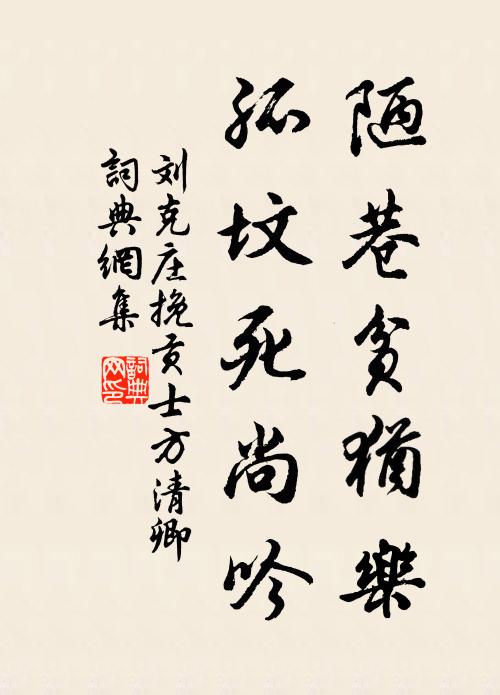 陋巷貧猶樂
孤坟死尚吟
刘克庄挽贡士方清卿
詞典網集
詞典
网印